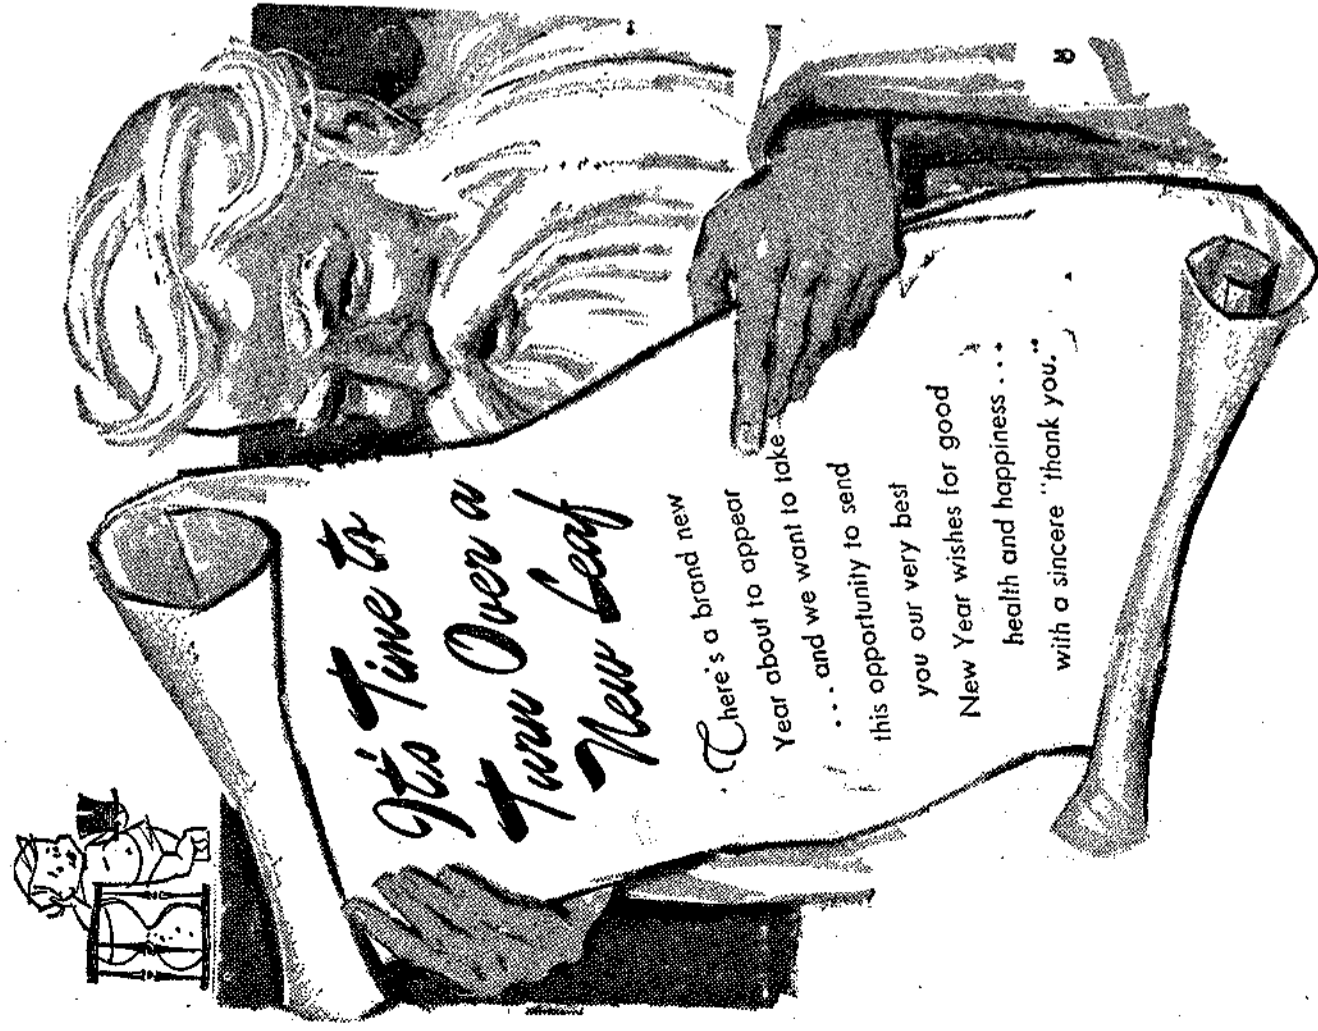 It's Time to
Turn Over a
New Leaf
There's a brand new
Year about to appear
... and we want to take
this opportunity to send
you our very best
New Year wishes for good
health and happiness...
with a sincere "thank you."